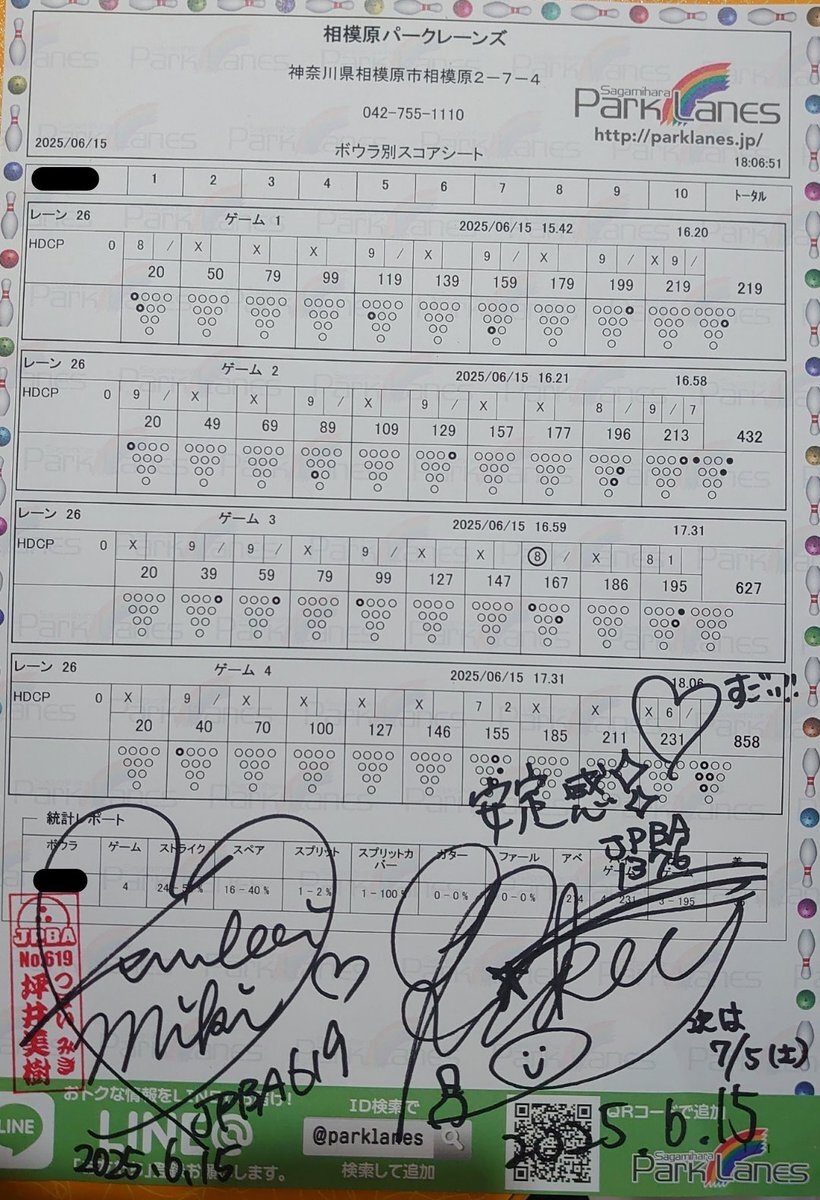 相模原パークレーンズ
神奈川県相模原市相模原2-7-4
042-755-1110
Sagamihara
Park Lanes
http://parklanes.jp/
2025/06/15
ボウラ別スコアシート
18:06:51
1 2 3 4 5 6 7 8 9 10 トータル
レーン 26 ゲーム 1 2025/06/15 15.42 16.20
HDCP 0 8 / X X X 9 / X 9 / X 9 / X 9 /
20 50 79 99 119 139 159 179 199 219 219
レーン 26 ゲーム 2 2025/06/15 16.21 16.58
HDCP 0 9 / X X 9 / X 9 / X X 8 / 9 / 7
20 49 69 89 109 129 157 177 196 213 432
レーン 26 ゲーム 3 2025/06/15 16.59 17.31
HDCP 0 X 9 / 9 / X 9 / X X 8 / X 8 1
20 39 59 79 99 127 147 167 186 195 627
レーン 26 ゲーム 4 2025/06/15 17.31 18.06
HDCP 0 X 9 / X X X X 7 2 X X X 6 /
20 40 70 100 127 146 155 185 211 231 858
すご!!!
安定感
JPBA
1376
統計レポート
ボウラ ゲーム ストライク スペア スプリット スプリットカバー ガター ファール アベ
4 16-40% 1-2% 1-100% 0-0% 0-0% 3-195
JPBA
No.619
つぼいみき
坪井美樹
miki
JPBA619
2025.6.15
次は
7/5(土)
2025.6.15
LINE
おトクな情報をLINE
LINE@
ID検索で
@parklanes
検索して追加
QRコードで追加
Sagamihara
Park Lanes